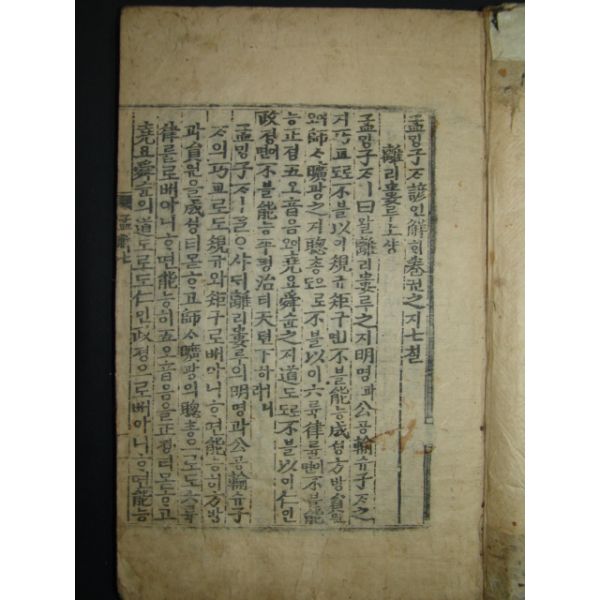 孟ᄆᆡᆼ子ᄌᆞ諺언解ᄒᆡ卷권之지七칠
離리婁루上샹
孟ᄆᆡᆼ子ᄌᆞㅣ曰왈離리婁루之지明명과公공輸슈子ᄌᆞ之
지巧교로도不블以이規규矩구ㅣ면不블能능成셩方방員원
이오師ᄉᆞ曠광之지聰총으로도不블以이六륙律률이면不블能
능正졍五오音음이오堯요舜슌之지道도로도不블以이仁인
政졍이면不블能능平평治티天텬下하ㅣ니라
孟ᄆᆡᆼ子ᄌᆞㅣᄀᆞᆯᄋᆞ샤ᄃᆡ離리婁루의明명과公공輸슈子
ᄌᆞ의巧교로도規규와矩구로ᄡᅥ아니ᄒᆞ면能능히方방
과員원을成셩티몯ᄒᆞ고師ᄉᆞ曠광의聰총으로도六륙
律률로ᄡᅥ아니ᄒᆞ면能능히五오音음을正졍티몯ᄒᆞ고
堯요舜슌의道도로도仁인政졍으로ᄡᅥ아니ᄒᆞ면能능